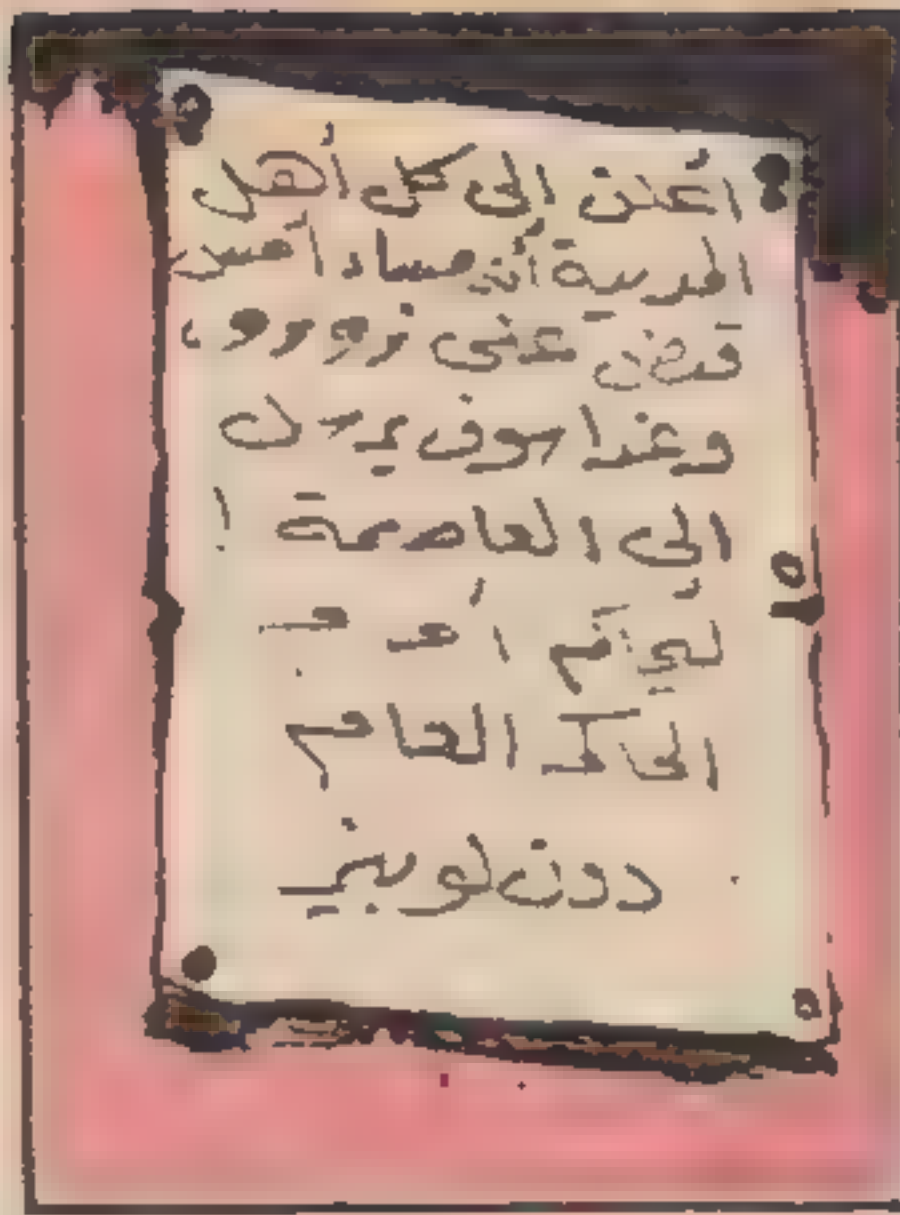 أعلن إلى كل أهل
المدينة أنه مساء أمس
قبض على زورو،
وغدا سوف يرسل
إلى العاصمة!
ليحاكم
الحاكم العام
دون لوبيز